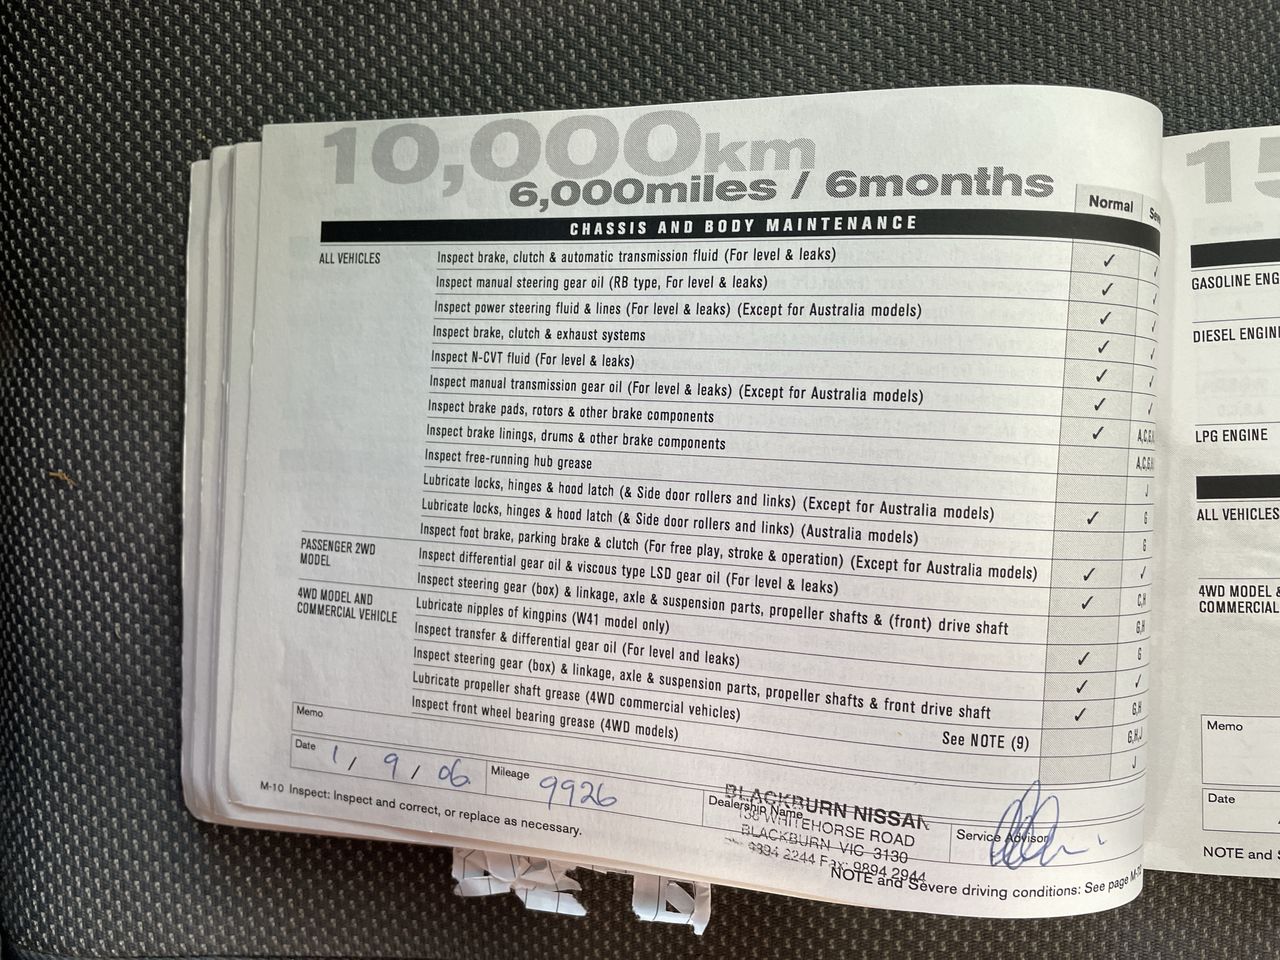 10,000km
6,000miles / 6months
Normal
CHASSIS AND BODY MAINTENANCE
ALL VEHICLES
Inspect brake, clutch & automatic transmission fluid (For level & leaks) ✓
Inspect manual steering gear oil (RB type, For level & leaks) ✓
Inspect power steering fluid & lines (For level & leaks) (Except for Australia models) ✓
Inspect brake, clutch & exhaust systems ✓
Inspect N-CVT fluid (For level & leaks) ✓
Inspect manual transmission gear oil (For level & leaks) (Except for Australia models) ✓
Inspect brake pads, rotors & other brake components ✓ A,C,G
Inspect brake linings, drums & other brake components A,C,G
Inspect free-running hub grease J
Lubricate locks, hinges & hood latch (& Side door rollers and links) (Except for Australia models) ✓ G
Lubricate locks, hinges & hood latch (& Side door rollers and links) (Australia models) G
Inspect foot brake, parking brake & clutch (For free play, stroke & operation) (Except for Australia models) ✓ ✓
PASSENGER 2WD
MODEL
Inspect differential gear oil & viscous type LSD gear oil (For level & leaks) ✓ C,H
Inspect steering gear (box) & linkage, axle & suspension parts, propeller shafts & (front) drive shaft G,H
4WD MODEL AND
COMMERCIAL VEHICLE
Lubricate nipples of kingpins (W41 model only) ✓ G
Inspect transfer & differential gear oil (For level and leaks) ✓ ✓
Inspect steering gear (box) & linkage, axle & suspension parts, propeller shafts & front drive shaft ✓ G,H
Lubricate propeller shaft grease (4WD commercial vehicles) G,H,J
Inspect front wheel bearing grease (4WD models) See NOTE (9) J
Memo
Date 1 / 9 / 06
Mileage 9926
Dealership Name
BLACKBURN NISSAN
138 WHITEHORSE ROAD
BLACKBURN VIC 3130
9894 2244 Fax: 9894 2944
Service Advisor
M-10 Inspect: Inspect and correct, or replace as necessary.
NOTE and Severe driving conditions: See page
15
GASOLINE ENG
DIESEL ENGIN
LPG ENGINE
ALL VEHICLES
4WD MODEL &
COMMERCIAL
Memo
Date
NOTE and